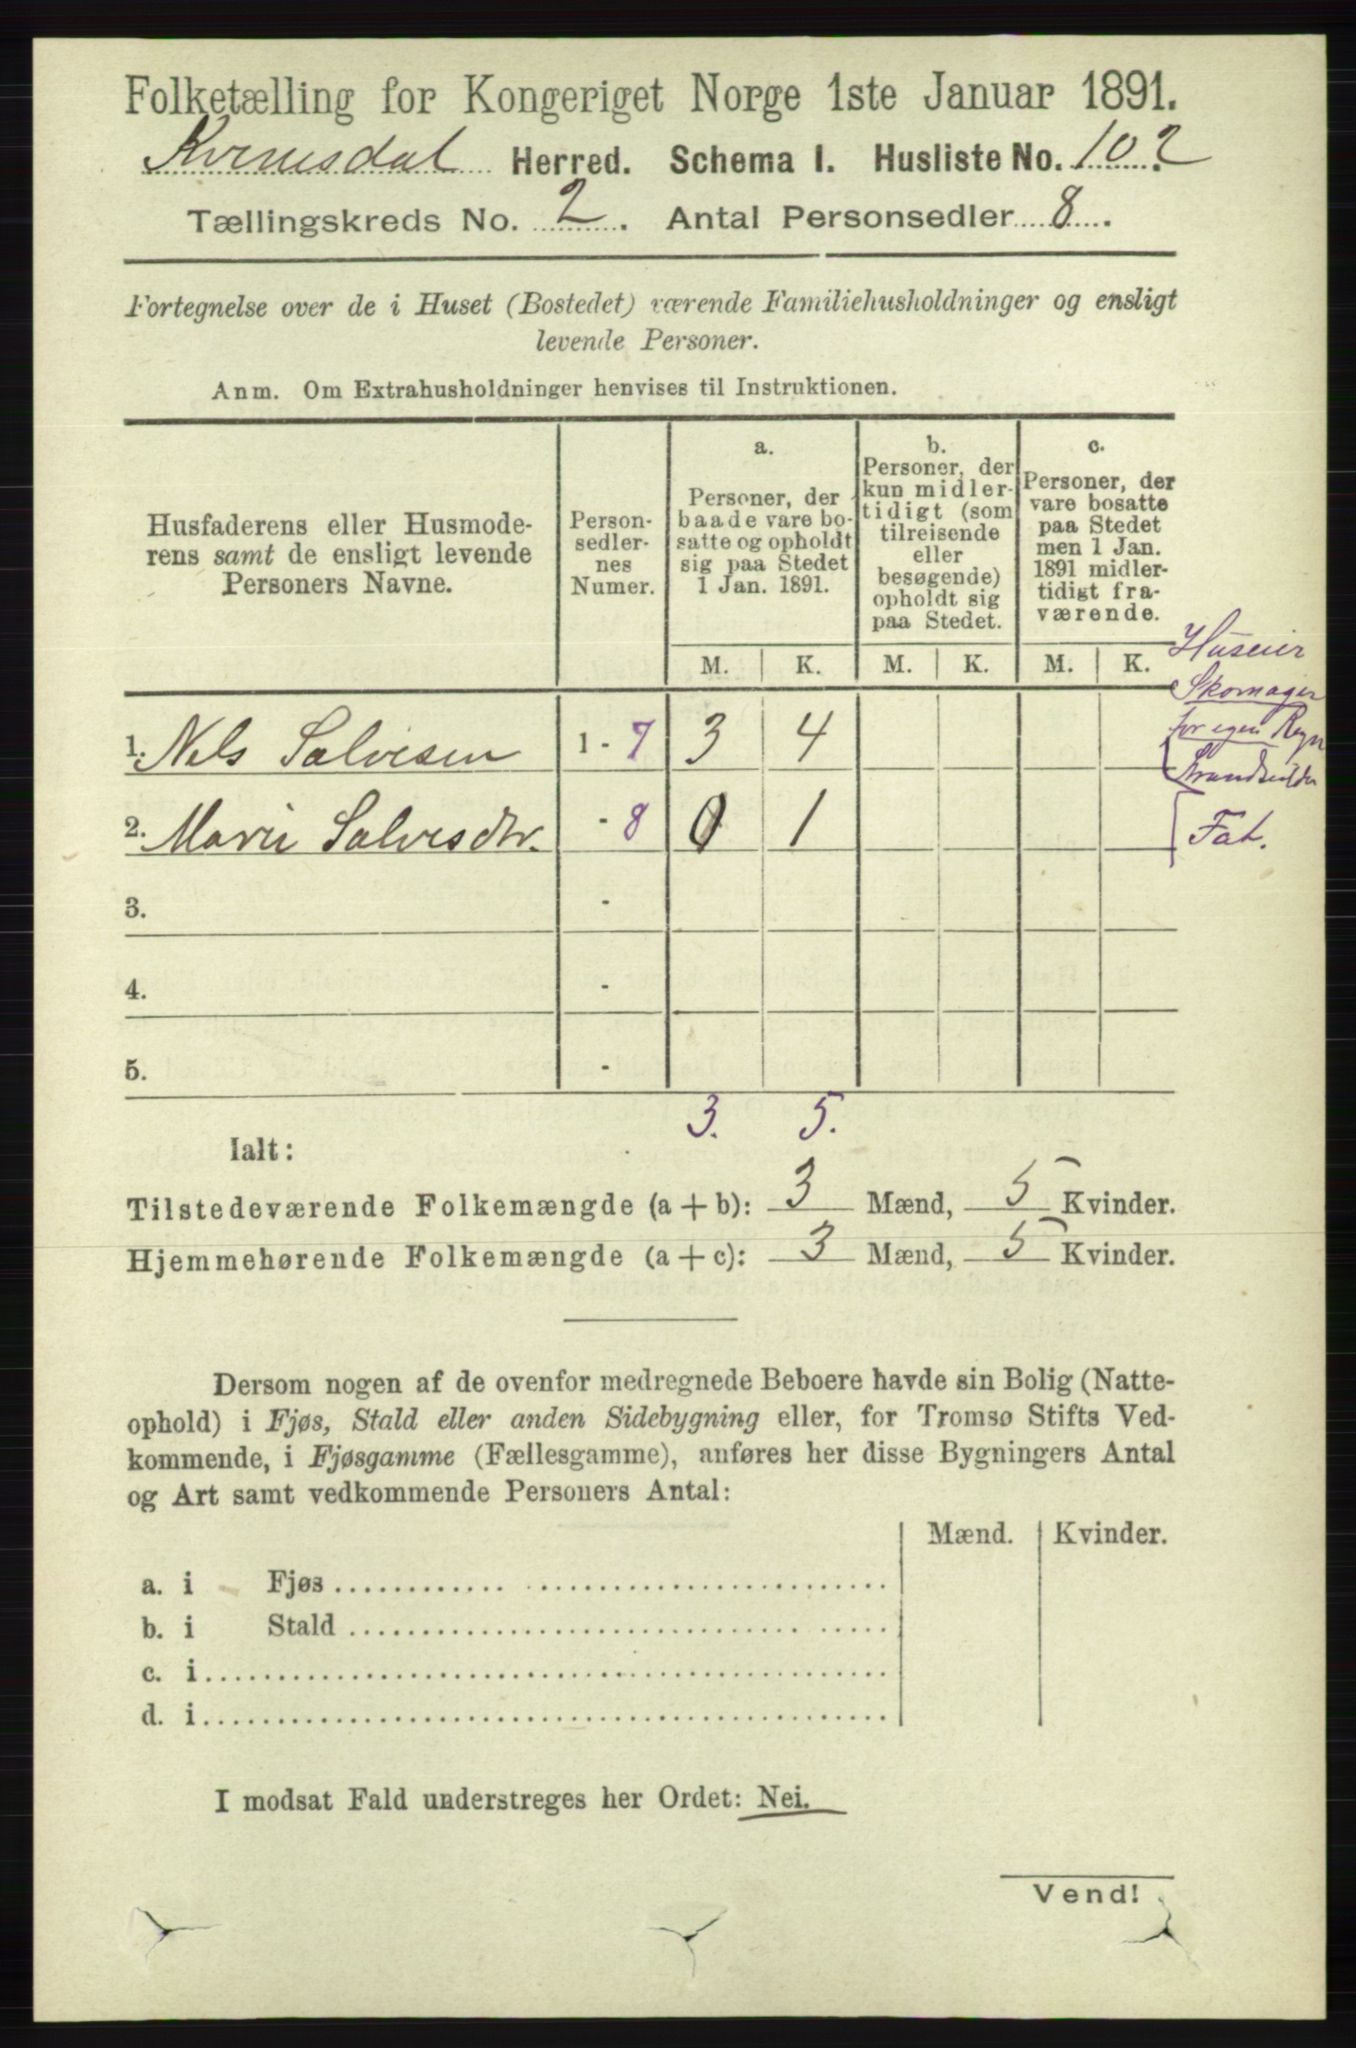 Folketælling for Kongeriget Norge 1ste Januar 1891.
Kvinesdal Herred. Schema I. Husliste No. 102
Tællingskreds No. 2. Antal Personsedler 8.
Fortegnelse over de i Huset (Bostedet) værende Familiehusholdninger og ensligt
levende Personer.
Anm. Om Extrahusholdninger henvises til Instruktionen.
Husfaderens eller Husmode-
rens samt de ensligt levende
Personers Navne.
Person-
sedler-
nes
Numer.
a.
Personer, der
baade vare bo-
satte og opholdt
sig paa Stedet
1 Jan. 1891.
b.
Personer, der
kun midler-
tidigt (som
tilreisende
eller
besøgende)
opholdt sig
paa Stedet.
c.
Personer, der
vare bosatte
paa Stedet
men 1 Jan.
1891 midler-
tidigt fra-
værende.
M. K. M. K. M. K.
Huseier
Skomager
for egen Regn
Strandsidder
1. Nels Salvesen 1 - 7 3 4
2. Marie Salvesdtr. - 8 0 1 Fat.
3. -
4. -
5. -
3. 5.
Ialt:
Tilstedeværende Folkemængde (a + b): 3 Mænd, 5 Kvinder.
Hjemmehørende Folkemængde (a + c): 3 Mænd, 5 Kvinder.
Dersom nogen af de ovenfor medregnede Beboere havde sin Bolig (Natte-
ophold) i Fjøs, Stald eller anden Sidebygning eller, for Tromsø Stifts Ved-
kommende, i Fjøsgamme (Fællesgamme), anføres her disse Bygningers Antal
og Art samt vedkommende Personers Antal:
Mænd. Kvinder.
a. i Fjøs
b. i Stald
c. i
d. i
I modsat Fald understreges her Ordet: Nei.
Vend!